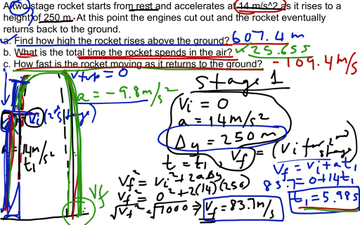 A two stage rocket starts from rest and accelerates at 14 m/s^2 as it rises to a
height of 250 m. At this point the engines cut out and the rocket eventually
returns back to the ground.
a. Find how high the rocket rises above the ground? 607.4 m
b. What is the total time the rocket spends in the air? ✓ 25.65s
c. How fast is the rocket moving as it returns to the ground? -109.4 m/s
Vtop = 0
a = -9.8 m/s²
Stage 1
Vi = 0
a = 14 m/s²
Δy = 250 m
t = t₁
Vf =
Vf = Vi + at₁
83.7 = 0 + 14t₁
t₁ = 5.98s
Vf² = Vi² + 2aΔy
Vf² = 0² + 2(14)(250)
√Vf² = √7000 ⇒ Vf = 83.7 m/s
a = 14 m/s²
t₁
Vf